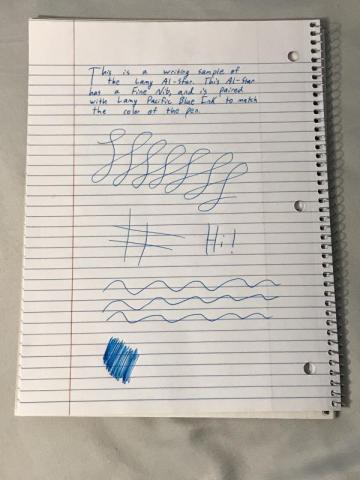 This is a writing sample of
the Lamy Al-Star. This Al-Star
has a Fine Nib, and is paired
with Lamy Pacific Blue Ink to match
the color of the pen.
#
Hi!